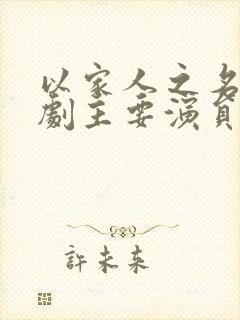 以家人之名
劇主要演員
許未來